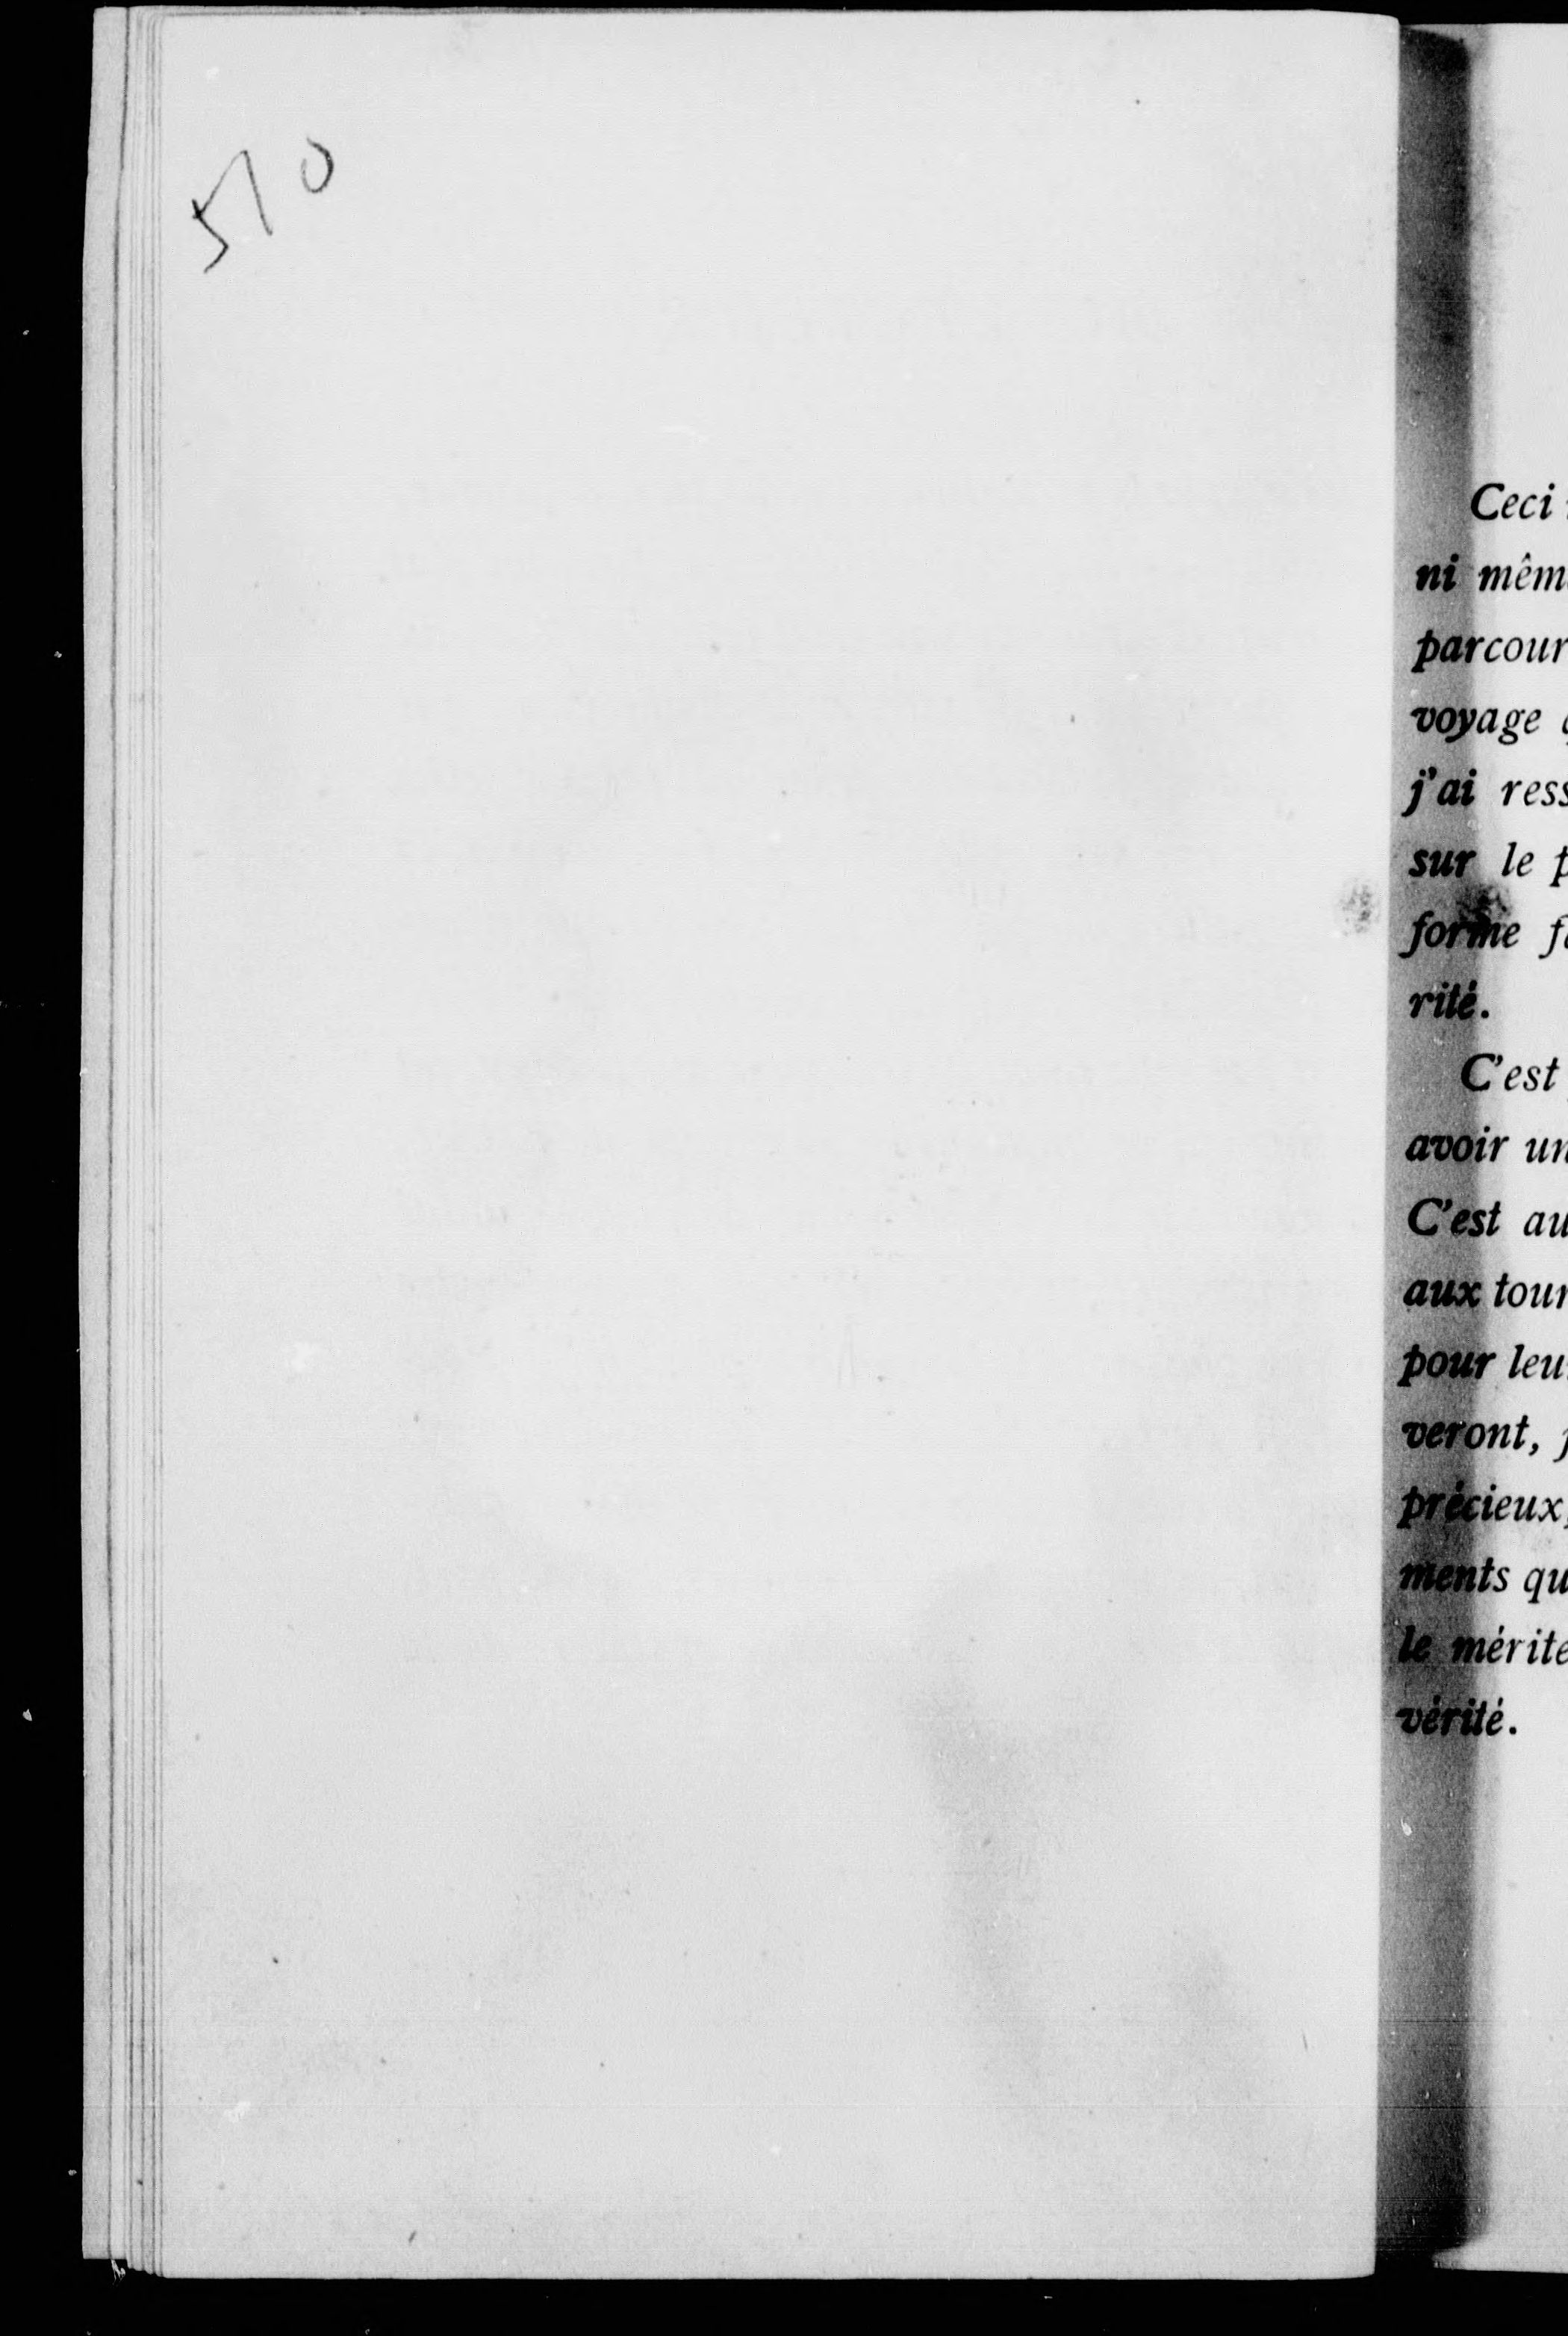 510
Ceci
ni mêm
parcour
voyage
j'ai ress
sur le p
forme f
rité.
C'est
avoir un
C'est au
aux tour
pour leu
veront,
précieux,
ments qu
le mérite
vérité.